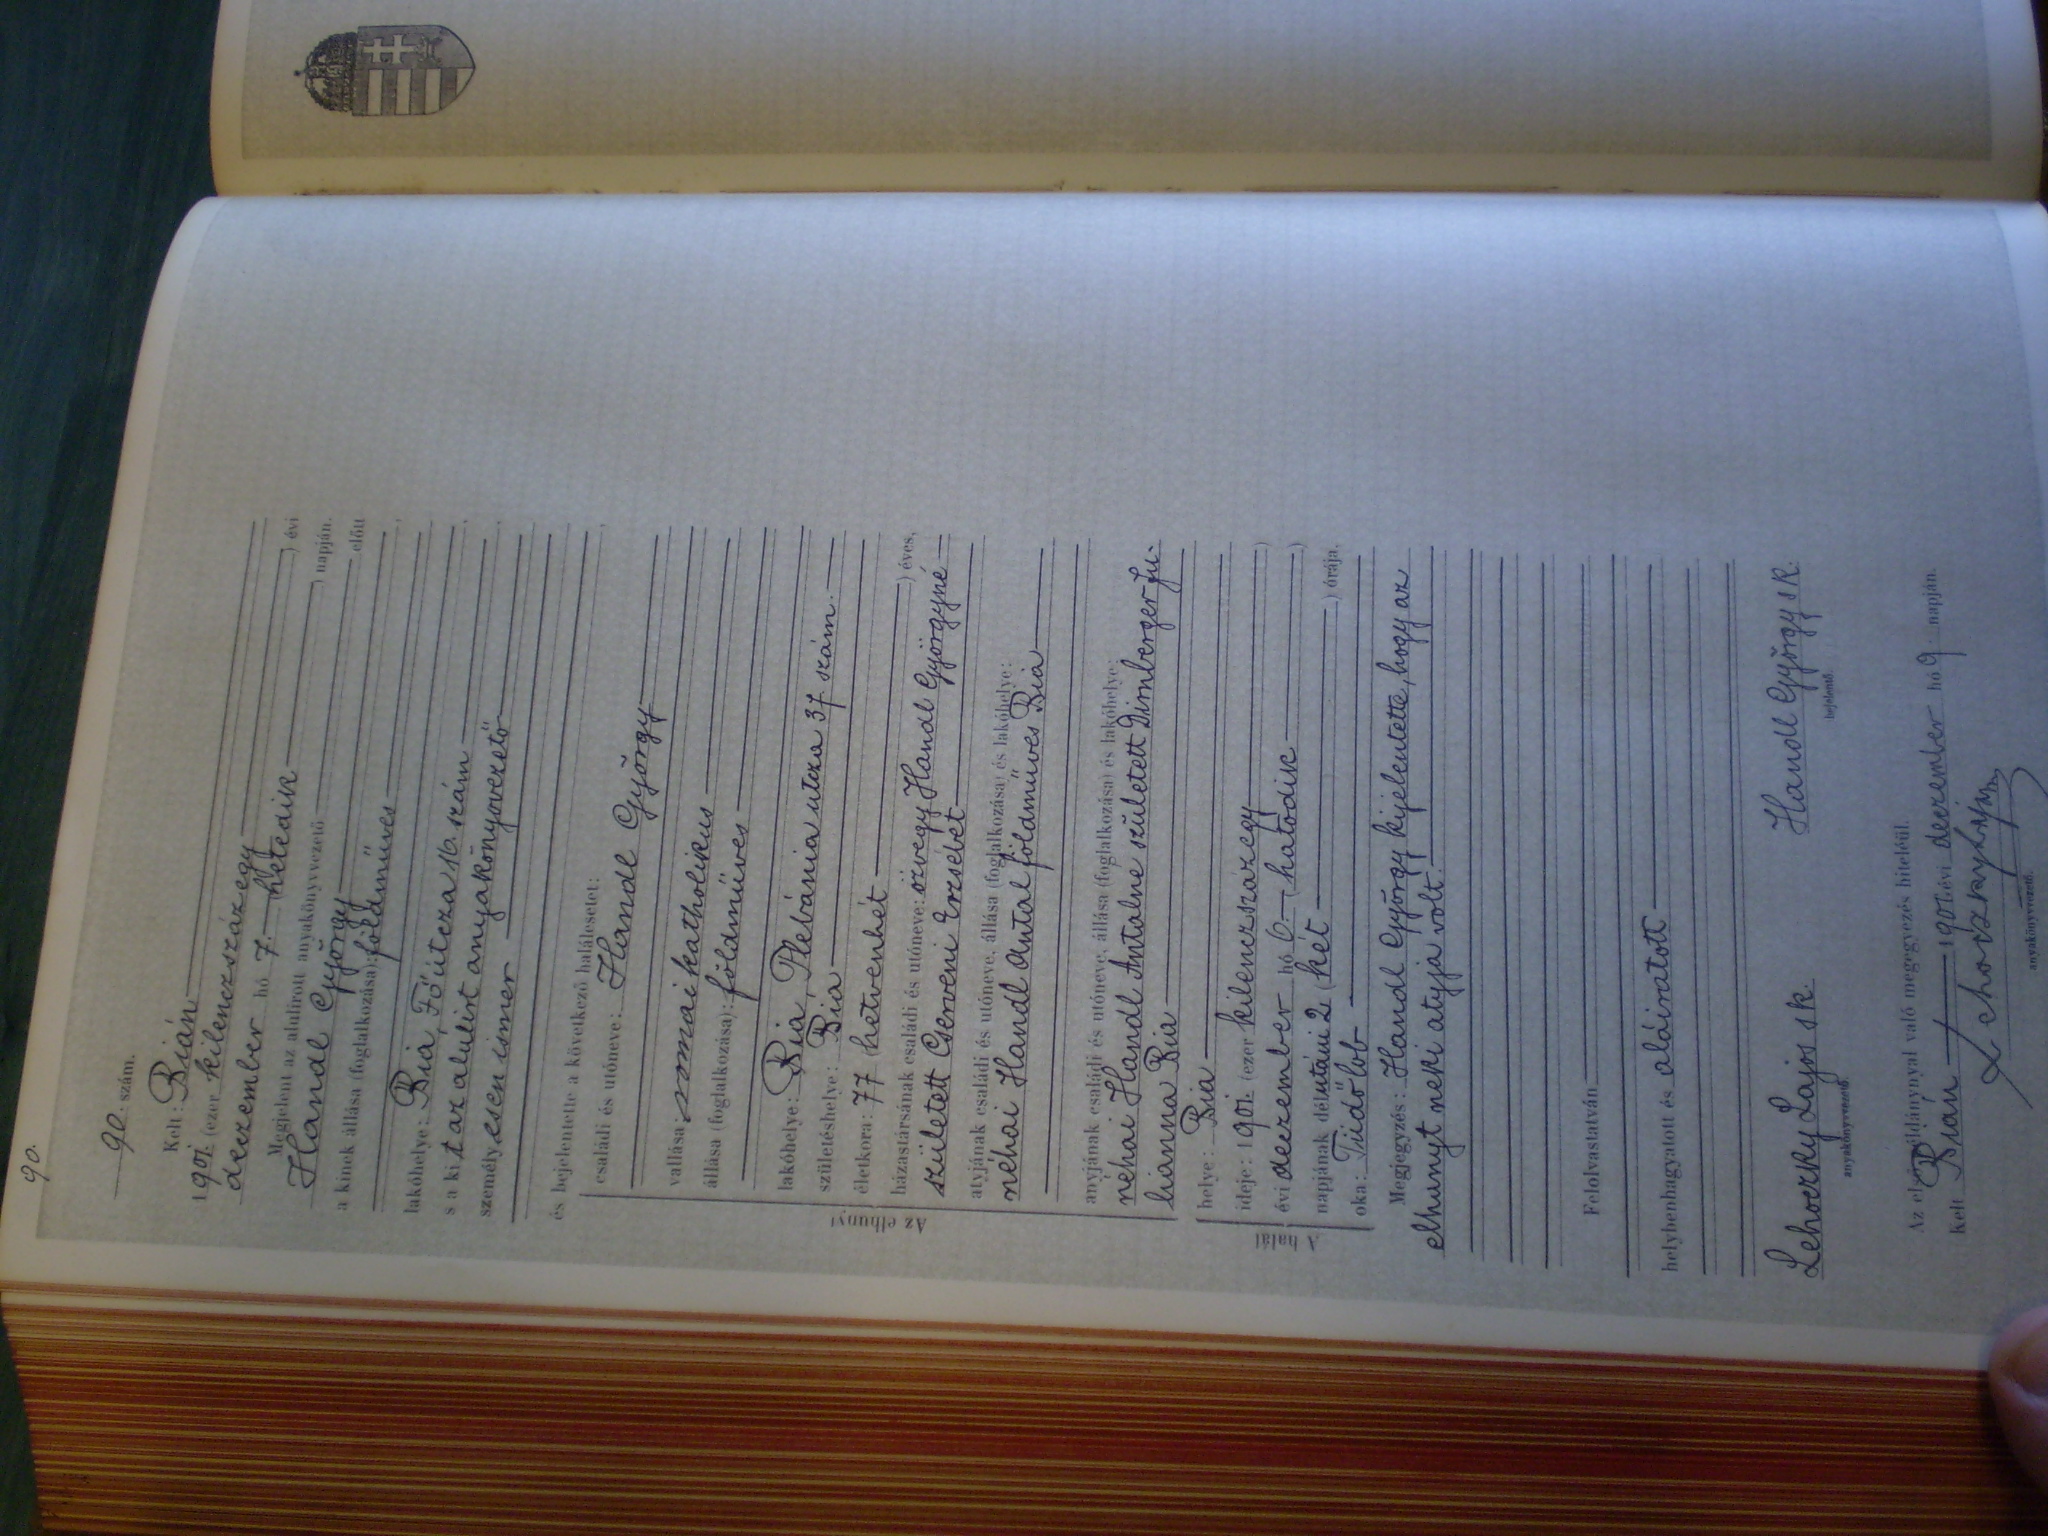 90.
90. szám.
Kelt: Bián
1901. (ezer kilenczszázegy
) évi
deczember hó 7. (hetedik
) napján.
Megjelent az alulirott anyakönyvezető előtt
Handl György
a kinek állása (foglalkozása): földműves
lakóhelye: Bia, Fő utcza 16. szám,
s a kit az alulirt anyakönyvezető
személyesen ismer
és bejelentette a következő halálesetet:
Az elhunyt
családi és utóneve: Handl György
vallása: romai katholikus
állása (foglalkozása): földműves
lakóhelye: Bia, Plebánia utcza 37 szám.
születéshelye: Bia
életkora: 77 (hetvenhét) éves,
házastársának családi és utóneve: özvegy Handl Györgyné
született Cserveni Erzsébet
atyjának családi és utóneve, állása (foglalkozása) és lakóhelye:
néhai Handl Antal földműves Bia
anyjának családi és utóneve, állása (foglalkozása) és lakóhelye:
néhai Handl Antalne született Dimberger Ju-
lianna Bia
A halál
helye: Bia
ideje: 1901. (ezer kilenczszázegy)
évi deczember hó 6. (hatodik)
napjának délutáni 2 (két) órája.
oka: Tüdőlob
Megjegyzés: Handl György kijelentette, hogy az
elhunyt neki atyja volt.
Felolvastatván
helybenhagyatott és aláiratott
Lehoczky Lajos sk.
anyakönyvvezető.
Handl György s k.
bejelentő.
Az első példánynyal való megegyezés hiteléül.
Kelt Bián 1901. évi deczember hó 9 napján.
anyakönyvvezető.